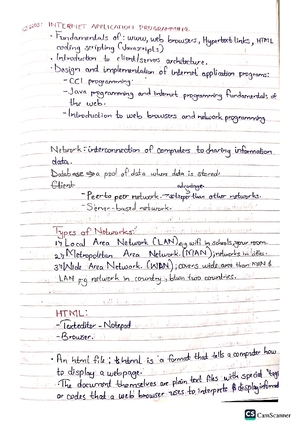 INTERNET APPLICATION PROGRAMMING.
• Fundamentals of: www, web browsers, Hypertext links, HTML
coding scripting (Javascripts)
• Introduction to client/server architecture.
• Design and implementation of internet application programs:
- CGI programming.
- Java programming and Internet programming fundamentals of
the web.
- Introduction to web browsers and network programming
Network: interconnection of computers to sharing information
data.
Database → a pool of data where data is stored.
Client
advantage
- Peer to peer network → cheaper than other networks.
- Server-based network.
Types of Networks:
1) Local Area Network (LAN) eg wifi in schools, your room.
2) Metropolitan Area Network (MAN); networks in cities.
3) Wide Area Network. (WAN); covers wide area than MAN &
LAN eg network in country, btwn two countries.
HTML:
- Texteditor - Notepad
- Browser.
• An html file; html is a format that tells a computer how
to display a webpage.
• The document themselves are plain text files with special "tags
or codes that a web browser uses to interprete & display informat
CS CamScanner